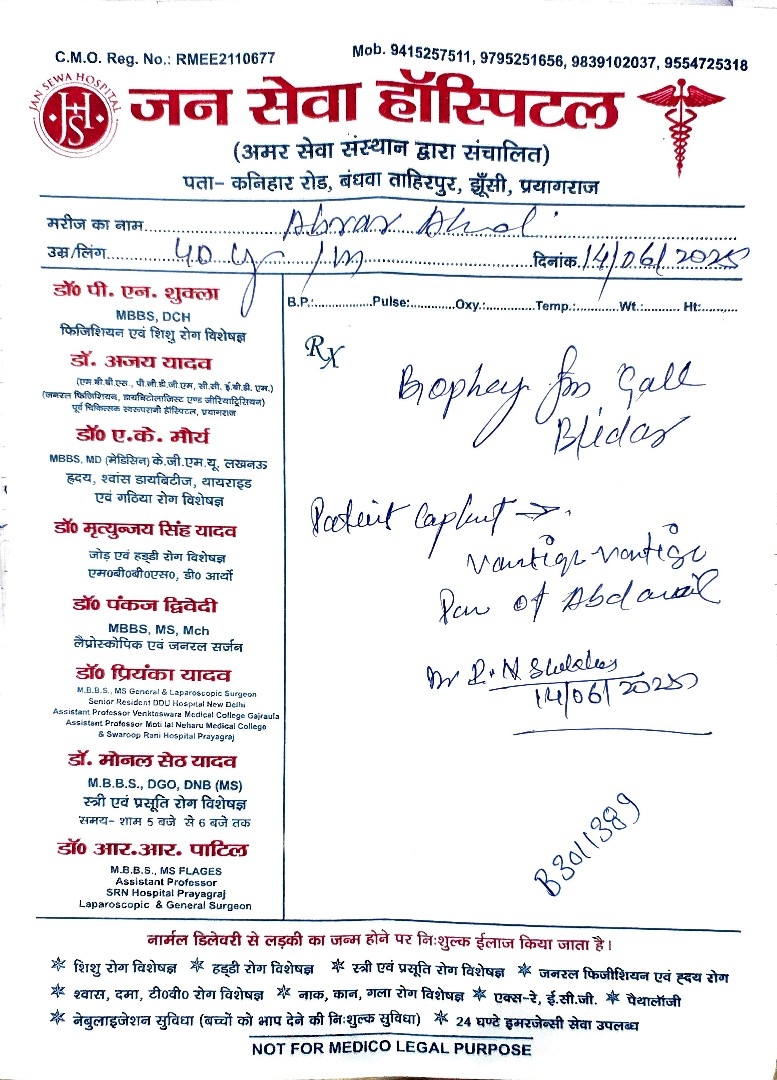 C.M.O. Reg. No.: RMEE2110677
Mob. 9415257511, 9795251656, 9839102037, 9554725318
JAN SEWA HOSPITAL
JHS
जन सेवा हॉस्पिटल
(अमर सेवा संस्थान द्वारा संचालित)
पता- कनिहार रोड, बंधवा ताहिरपुर, झूँसी, प्रयागराज
मरीज का नाम Abrar
उम्र/लिंग 40 y / m दिनांक 14/06/2025
डॉ० पी. एन. शुक्ला
MBBS, DCH
फिजिशियन एवं शिशु रोग विशेषज्ञ
डॉ. अजय यादव
(एम.बी.बी.एस., पी.जी.डी.जी.एम, सी.सी. ई.बी.डी. एम.)
(जनरल फिजिशियन, डायबिटोलाजिस्ट एण्ड जीरियाट्रिसियन)
पूर्व चिकित्सक स्वरूपरानी हॉस्पिटल, प्रयागराज
डॉ० ए.के. मौर्य
MBBS, MD (मेडिसिन) के.जी.एम.यू. लखनऊ
हृदय, श्वांस डायबिटीज, थायराइड
एवं गठिया रोग विशेषज्ञ
डॉ० मृत्युन्जय सिंह यादव
जोड़ एवं हड्डी रोग विशेषज्ञ
एम०बी०बी०एस०, डी० आर्थो
डॉ० पंकज द्विवेदी
MBBS, MS, Mch
लैप्रोस्कोपिक एवं जनरल सर्जन
डॉ० प्रियंका यादव
M.B.B.S., MS General & Laparoscopic Surgeon
Senior Resident DDU Hospital New Delhi
Assistant Professor Venkteswara Medical College Gajraula
Assistant Professor Moti lal Neharu Medical College
& Swaroop Rani Hospital Prayagraj
डॉ. मोनल सेठ यादव
M.B.B.S., DGO, DNB (MS)
स्त्री एवं प्रसूति रोग विशेषज्ञ
समय- शाम 5 बजे से 6 बजे तक
डॉ० आर.आर. पाटिल
M.B.B.S., MS FLAGES
Assistant Professor
SRN Hospital Prayagraj
Laparoscopic & General Surgeon
B.P.: Pulse: Oxy.: Temp.: Wt.: Ht:
Rx
Gall
Patient
of
14/06/2025
B3011389
नार्मल डिलेवरी से लड़की का जन्म होने पर निःशुल्क ईलाज किया जाता है।
शिशु रोग विशेषज्ञ हड्डी रोग विशेषज्ञ स्त्री एवं प्रसूति रोग विशेषज्ञ जनरल फिजीशियन एवं हृदय रोग
श्वास, दमा, टी०वी० रोग विशेषज्ञ नाक, कान, गला रोग विशेषज्ञ एक्स-रे, ई.सी.जी. पैथालॉजी
नेबुलाइजेशन सुविधा (बच्चों को भाप देने की निःशुल्क सुविधा) 24 घण्टे इमरजेन्सी सेवा उपलब्ध
NOT FOR MEDICO LEGAL PURPOSE